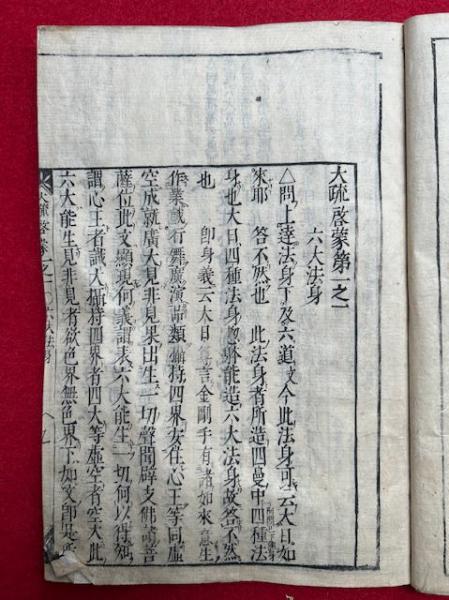 大疏啓蒙第一之一
六大法身
△問上達法身下及六道文今此法身可云大日如
來耶 答不然也 此法身者所造四曼中四種法
身也大日四種法身 能造六大法身故答不然
也 即身義云大日 言金剛手有諸如來意生
作業戲行舞廣演品類攝持四界安住心王等同虛
空成就廣大見非見果出生一切聲聞辟支佛諸菩
薩位此文顯現何義謂表六大能生一切何以得知
謂心王者識大攝持四界者四大等虛空者空大此
六大能生見非見者欲色界無色界下如文即是
大疏啓蒙一之一 六大法身